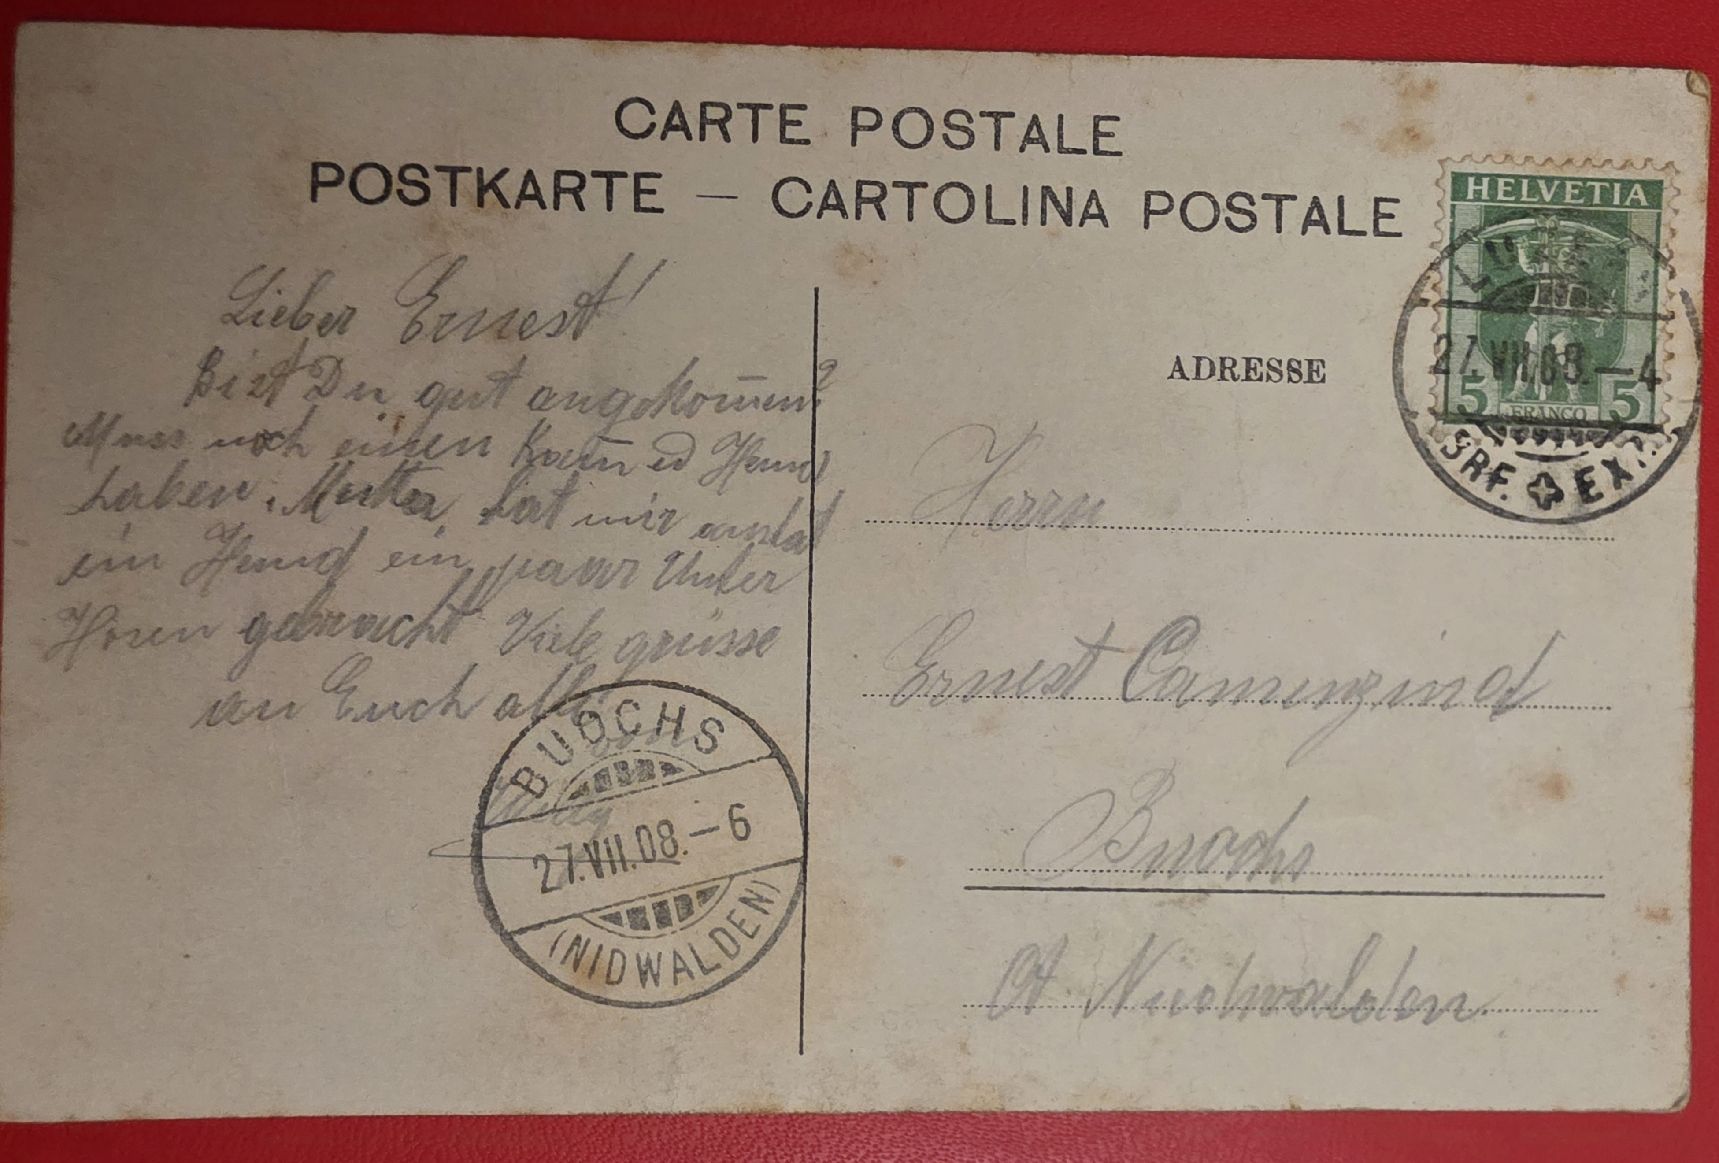 CARTE POSTALE
POSTKARTE — CARTOLINA POSTALE
HELVETIA
5 FRANCO 5
LUZERN
27.VII.08.—4
BRF. EXP.
Lieber Ernest!
Bist Du gut angekom̅en?
Muss noch einen Kam̅ ed Hemd
haben. Mutter hat mir anstat
ein Hemd ein paar Unter
Hosen gebracht Viele grüsse
an Euch alle
BUOCHS
27.VII.08.—6
(NIDWALDEN)
ADRESSE
Herrn
Ernest Camenzind
Buochs
Ct Nidwalden.